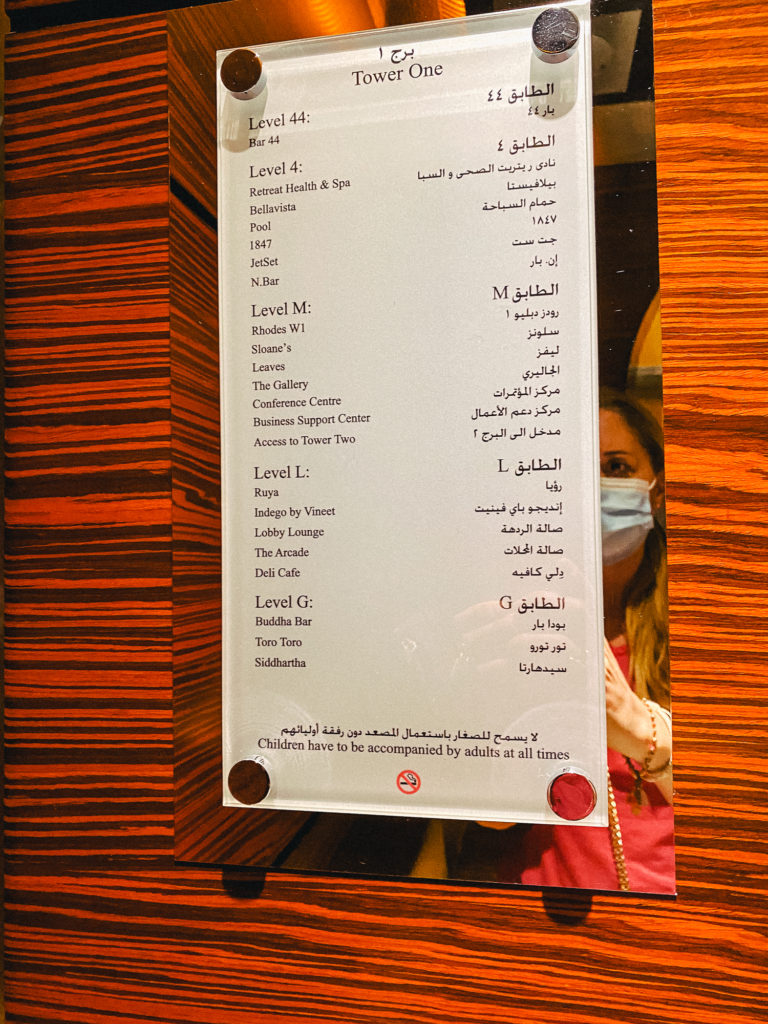 برج ١
Tower One
Level 44:
Bar 44
Level 4:
Retreat Health & Spa
Bellavista
Pool
1847
JetSet
N.Bar
Level M:
Rhodes W1
Sloane's
Leaves
The Gallery
Conference Centre
Business Support Center
Access to Tower Two
Level L:
Ruya
Indego by Vineet
Lobby Lounge
The Arcade
Deli Cafe
Level G:
Buddha Bar
Toro Toro
Siddhartha
الطابق ٤٤
بار ٤٤
الطابق ٤
نادى ريتريت الصحى و السبا
بيلافيستا
حمام السباحة
١٨٤٧
جت ست
إن. بار
الطابق M
رودز دبليو ١
سلونز
ليفز
الجاليري
مركز المؤتمرات
مركز دعم الأعمال
مدخل الى البرج ٢
الطابق L
رؤيا
إنديجو باي فينيت
صالة الردهة
صالة المحلات
دِلي كافيه
الطابق G
بودا بار
تور تورو
سيدهارتا
لا يسمح للصغار باستعمال المصعد دون رفقة أوليائهم
Children have to be accompanied by adults at all times